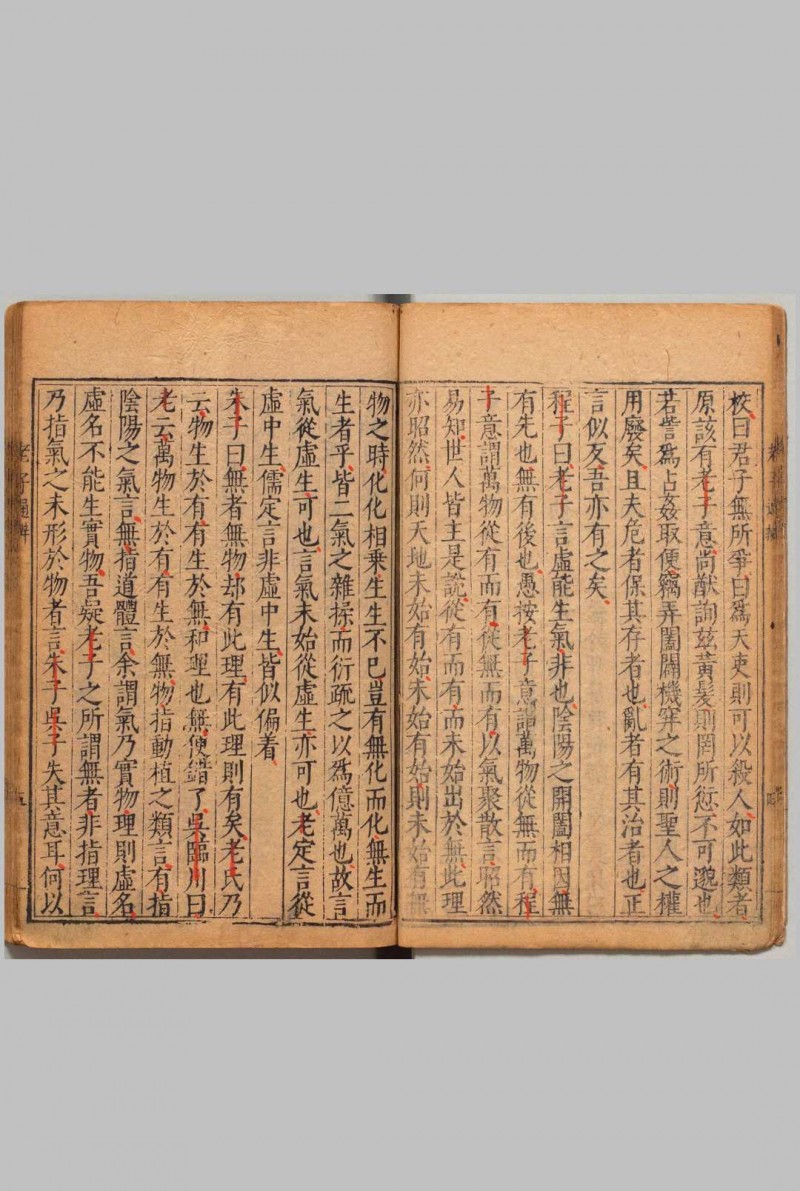 校曰君子無所爭曰爲天吏則可以殺人如此類者
原該有老子意尚猷詢玆黃髮則罔所愆不可邈也
若訾爲占姦取便竊弄闔闢機穽之術則聖人之權
用廢矣且夫危者保其存者也亂者有其治者也正
言似反吾亦有之矣
程子曰老子言虛能生氣非也陰陽之開闔相因無
有先也無有後也愚按老子意謂萬物從無而有程
子意謂萬物從有而有從無而有以氣聚散言昭然
易知世人皆主是說從有而有而未始出於無此理
亦昭然何則天地未始有始未始有始則未始有無
物之時化化相乗生生不已豈有無化而化無生而
生者乎皆二氣之雜揉而衍疏之以爲億萬也故言
氣從虛生可也言氣未始從虛生亦可也老定言從
虛中生儒定言非虛中生皆似偏着
朱子曰無者無物却有此理有此理則有矣老氏乃
云物生於有有生於無和理也無便錯了吳臨川曰
老云萬物生於有有生於無物指動植之類言有指
陰陽之氣言無指道體言余謂氣乃實物理則虛名
虛名不能生實物吾疑老子之所謂無者非指理言
乃指氣之未形於物者言朱子吳子失其意耳何以
老子通辨
五